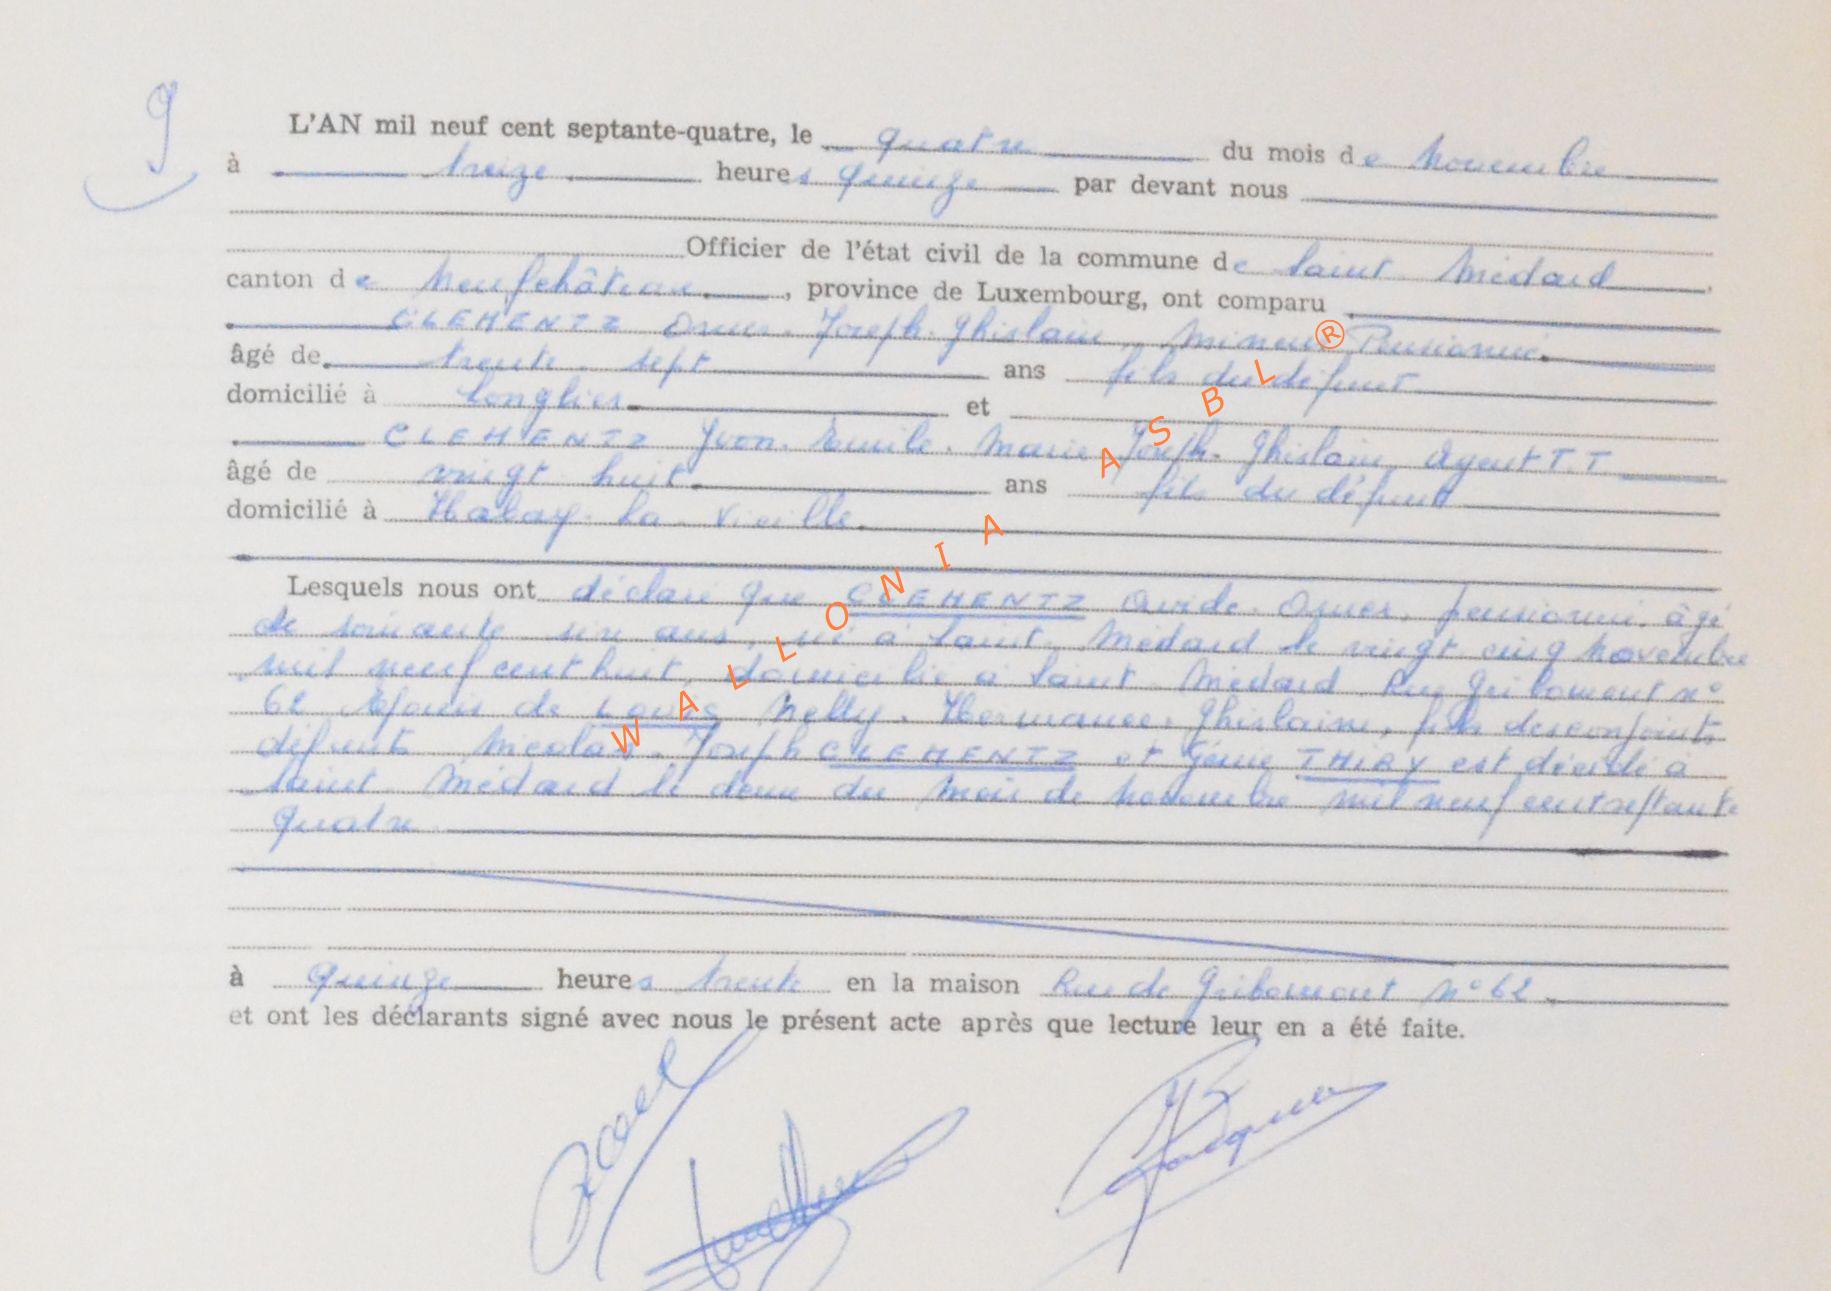 9
L'AN mil neuf cent septante-quatre, le quatre du mois de novembre
à treize heures quinze par devant nous
Officier de l'état civil de la commune de Saint Médard
canton de Neufchâteau, province de Luxembourg, ont comparu
CLEMENTZ Omer. Joseph. Ghislain, mineur Pensionné.
âgé de trente sept ans fils du défunt
domicilié à Longlier et
CLEMENTZ Yvon. Emile. Marie Joseph. Ghislain, Agent T.T
âgé de vingt huit ans fils du défunt
domicilié à Habay. la. Vieille.
Lesquels nous ont déclaré que CLEMENTZ Ovide. Omer, pensionné, âgé
de soixante six ans, né à Saint. Médard le vingt cinq novembre
mil neuf cent huit, domicilié à Saint. Médard Rue Gribomont n°
62 Epoux de LOUIS Nelly. Hermance. Ghislaine, fils des conjoints
défunts Nicolas. Joseph CLEMENTZ et THIRY est décédé à
Saint. Médard le deux du mois de novembre mil neuf cent septante
quatre
à quinze heures trente en la maison Rue de Gribomont n° 62.
et ont les déclarants signé avec nous le présent acte après que lecture leur en a été faite.
WALLONIA ASBL®